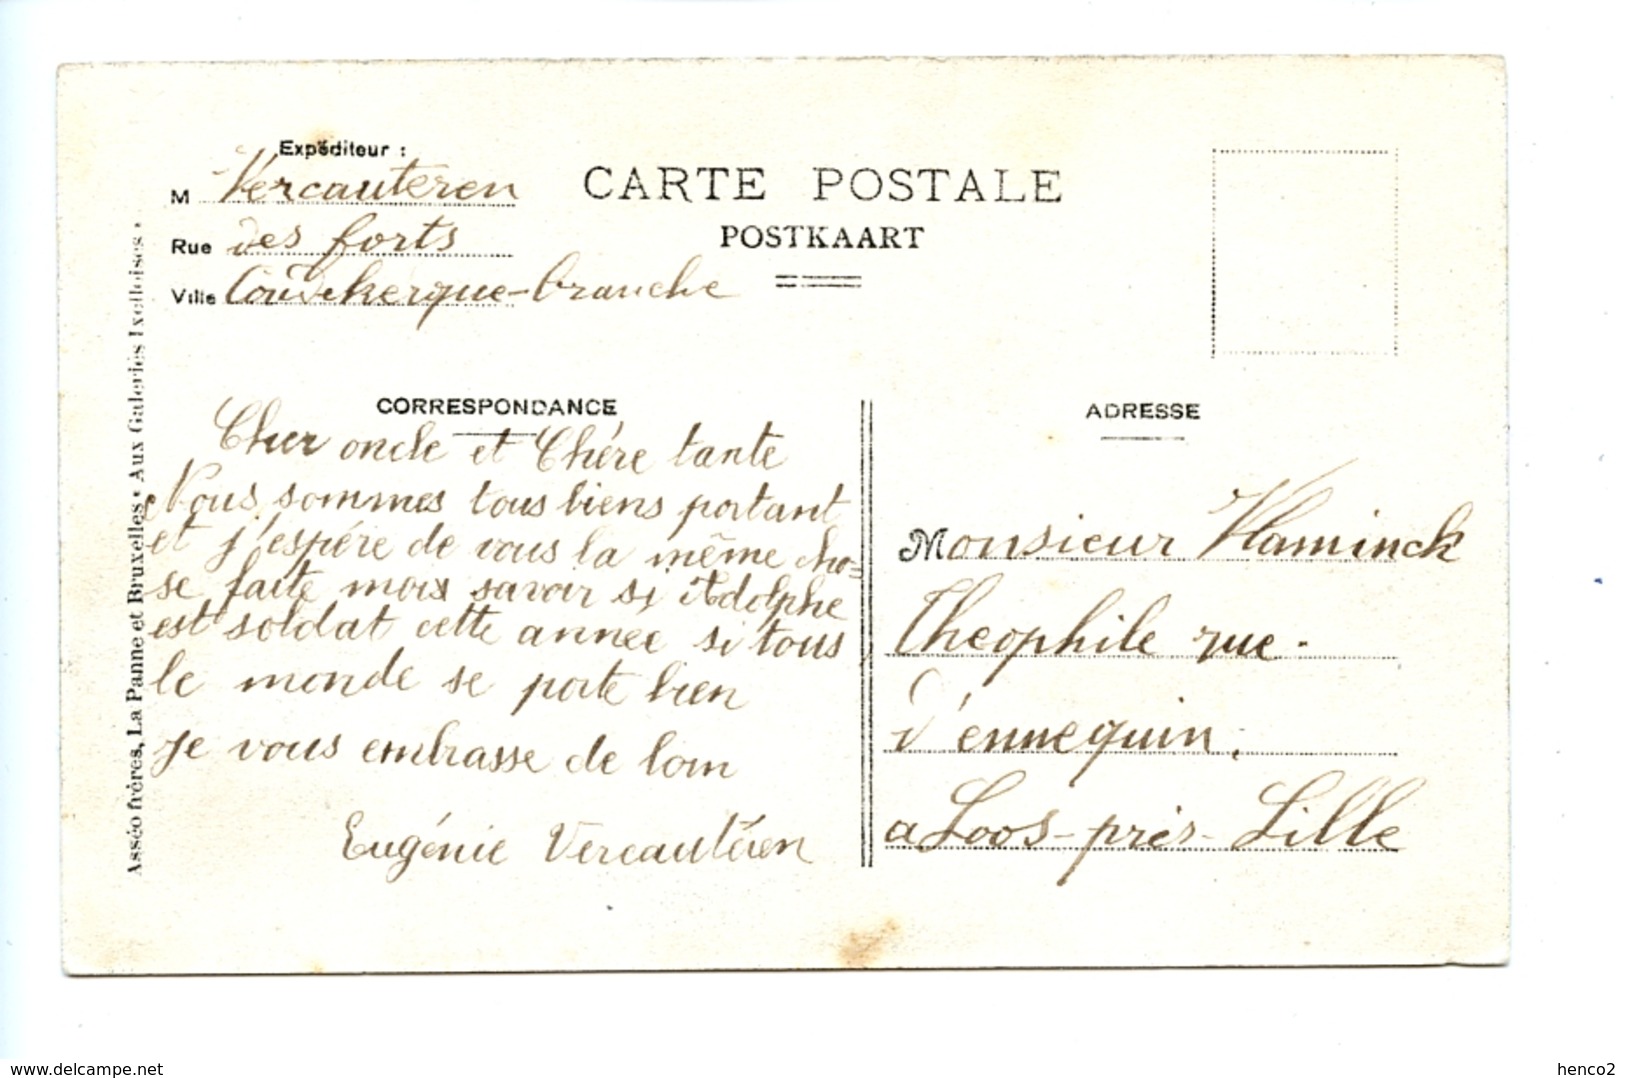 Expéditeur :
M Vercauteren
Rue des forts
Ville Coudekerque-branche
CARTE POSTALE
POSTKAART
CORRESPONDANCE
Cher oncle et Chére tante
Nous sommes tous biens portant
et j'espére de vous la même cho=
se faite mois savoir si Adolphe
est soldat cette année si tous
le monde se porte bien
je vous embrasse de loin
Eugénie Vercautéren
ADRESSE
Monsieur Vlaminck
Theophile rue.
d'ennequin.
a Loos-prés-Lille
Asséo frères, La Panne et Bruxelles • Aux Galeries Ixelloises •
delcampe.net
henco2